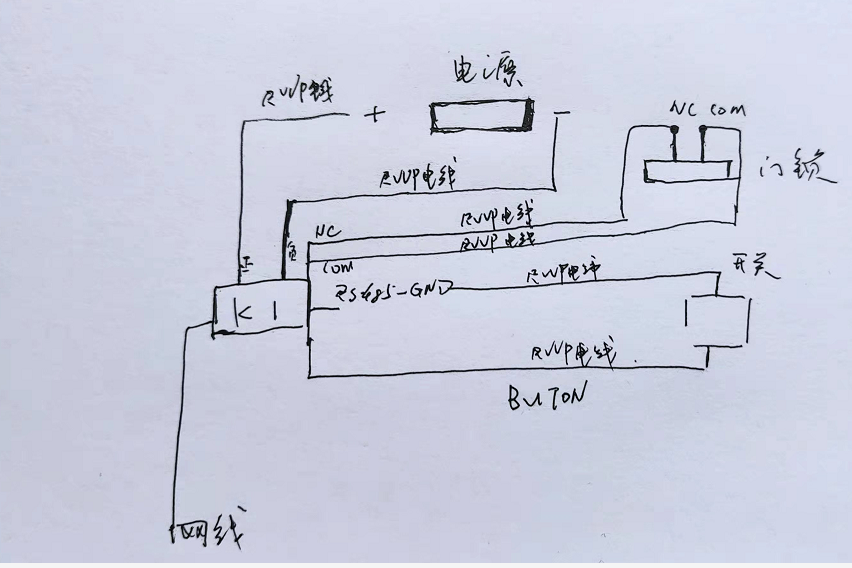 电源
RVVP线
+
-
NC COM
门锁
RVVP电线
RVVP电线
NC
RVVP电线
COM
正
负
开关
RS485-GND
RVVP电线
K1
RVVP电线
BUTON
网线